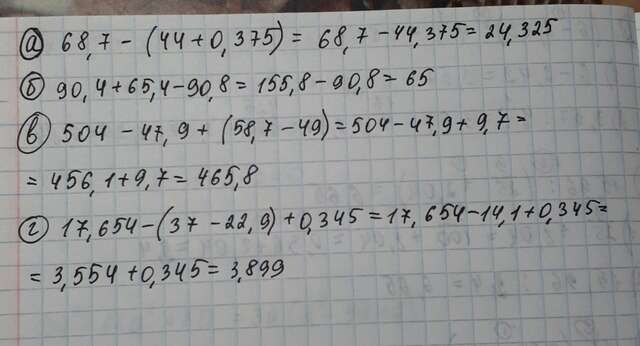 а) 68,7 - (44 + 0,375) = 68,7 - 44,375 = 24,325
б) 90,4 + 65,4 - 90,8 = 155,8 - 90,8 = 65
в) 504 - 47,9 + (58,7 - 49) = 504 - 47,9 + 9,7 =
= 456,1 + 9,7 = 465,8
г) 17,654 - (37 - 22,9) + 0,345 = 17,654 - 14,1 + 0,345 =
= 3,554 + 0,345 = 3,899